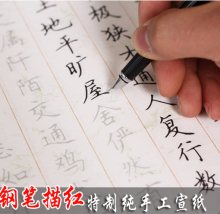 极狭才通人复行数
土地平旷屋舍俨然
属阡陌交通鸡
悉如
钢笔描红 特制纯手工宣纸